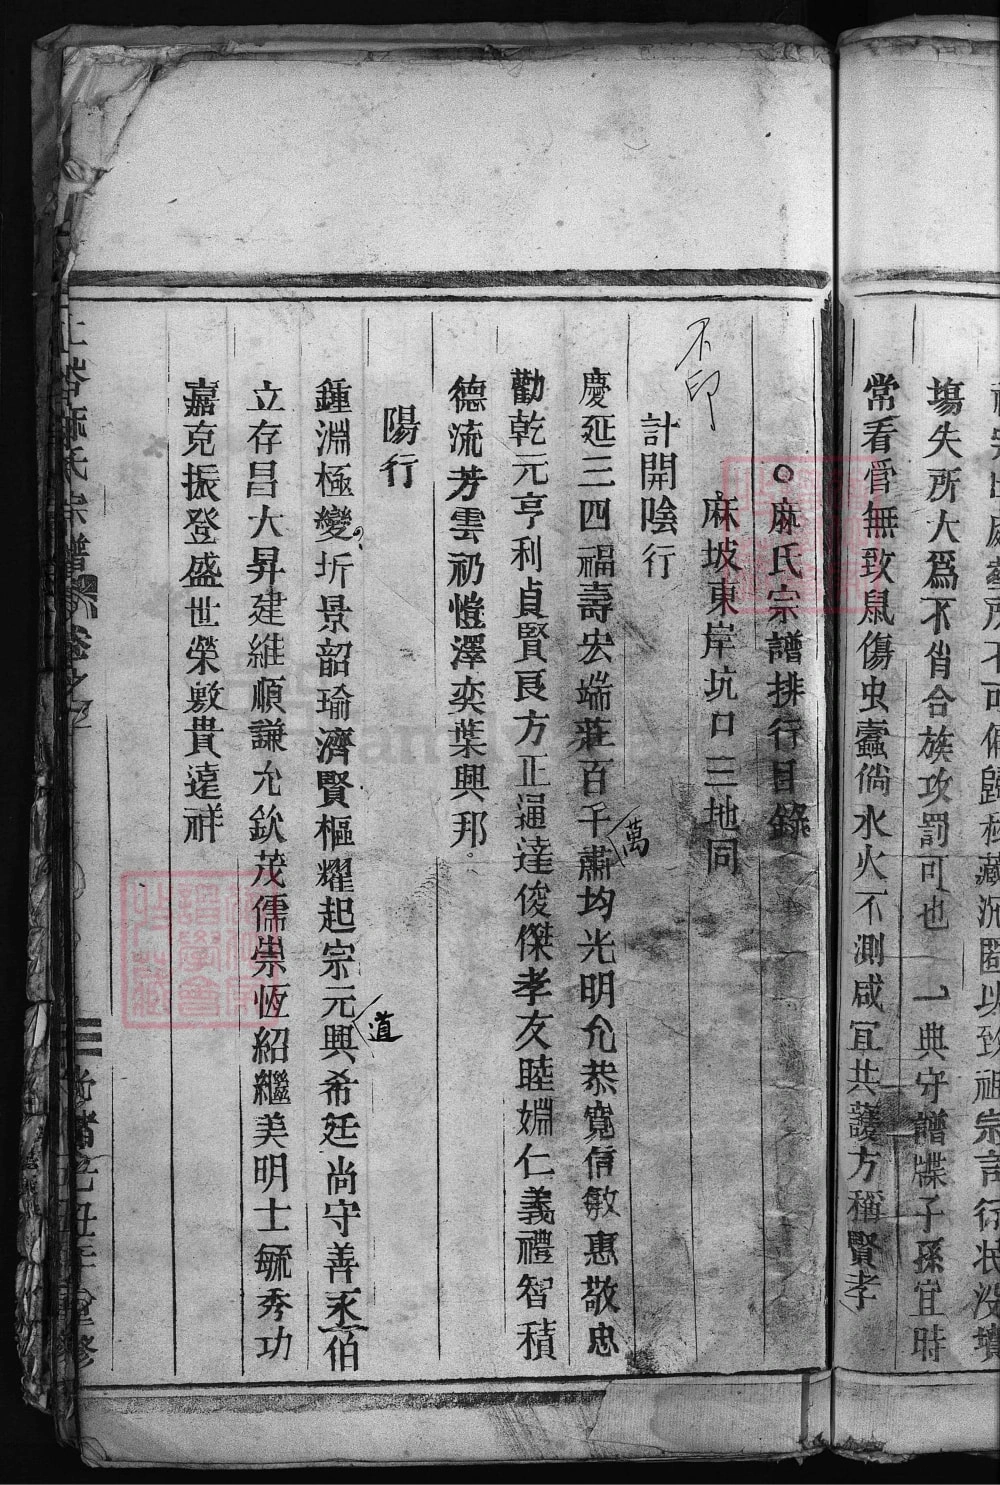 塲失所大爲不肖合族攻罰可也 一典守譜牒子孫宜時
常看管無致鼠傷虫蠹倘水火不測咸宜共護方稱賢孝
○麻氏宗譜排行目錄
不印
麻坡東岸坑口三地同
計開陰行
慶延三四福壽宏端莊百千肅均光明允恭寬信敏惠敬忠
萬
勸乾元亨利貞賢良方正通達俊傑孝友睦婣仁義禮智積
德流芳雲礽愷澤奕葉興邦
陽行
鍾淵極變圻景韶瑜濟賢樞耀起宗元興希廷尚守善永伯
道
立存昌大昇建維順謙允欽茂儒崇恆紹繼美明士毓秀功
嘉克振登盛世榮敷貴遠祥
氏宗譜 卷之